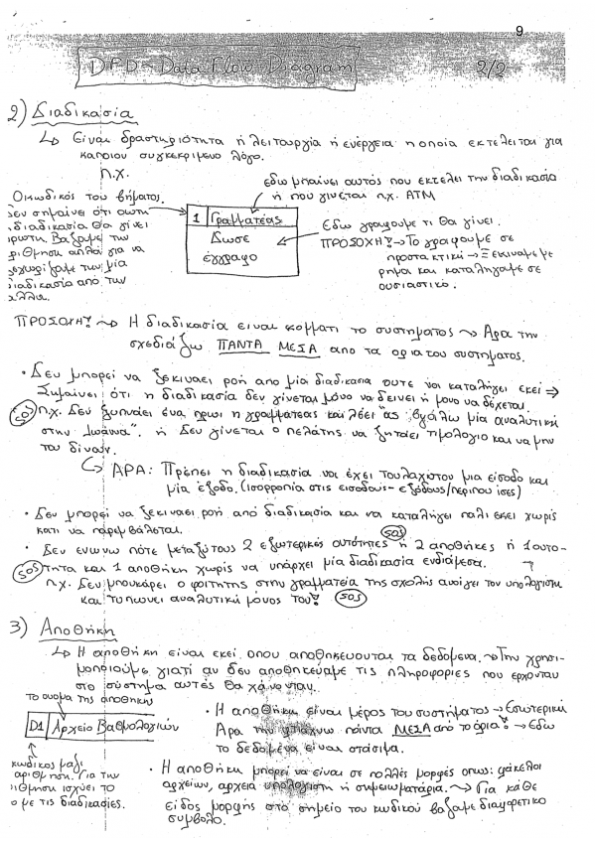 9
DFD - Data Flow Diagram 2/2
2) Διαδικασία
↳ Είναι δραστηριότητα ή λειτουργία ή ενέργεια η οποία εκτελείται για
κάποιον συγκεκριμένο λόγο.
π.χ.
εδω μπαίνει αυτός που εκτελεί την διαδικασία
ή που γίνεται π.χ. ATM
Ο κωδικός του βήματος.
Δεν σημαίνει ότι αυτή
η διαδικασία θα γίνει
πρώτη. Βάζουμε την
αρίθμηση απλά για να
ξεχωρίζουμε την μία
διαδικασία από την
άλλη.
1 Γραμματέας
Δώσε
έγγραφο
Εδω γράφουμε τι θα γίνει.
ΠΡΟΣΟΧΗ! → Το γράφουμε σε
προστακτική → Ξεκιναμε με
ρήμα και καταλήγαμε σε
ουσιαστικό.
ΠΡΟΣΟΧΗ! → Η διαδικασία είναι κομμάτι του συστήματος → Άρα την
σχεδιάζω ΠΑΝΤΑ ΜΕΣΑ απο τα ορια του συστήματος.
• Δεν μπορεί να ξεκιναει ροή απο μία διαδικασια ουτε να καταλήγει εκεί ⇒
Σημαίνει ότι η διαδικασία δεν γίνεται μόνο να δείνει ή μονο να δέχεται.
SOS π.χ. Δεν ξυπνάει ένα πρωι η γραμματέας και λέει "ας βγάλω μία αναλυτική
στην Ιωάννα". ή Δεν γίνεται ο πελάτης να ζητάει τιμολογιο και να μην
του δίναν.
↳ ΑΡΑ: Πρέπει η διαδικασία να έχει τουλαχιστον μια είσοδο και
μία έξοδο. (ισορροπία στις εισοδους - εξόδους/περίπου ίσες)
• Δεν μπορεί να ξεκιναει ροή από διαδικασία και να καταλήγει παλι εκεί χωρίς
κατι να παρεμβάλεται.
SOS
• Δεν ενωνω πότε μεταξύ τους 2 εξωτερικές οντότητες ή 2 αποθήκες ή 1 οντο-
SOS τητα και 1 αποθήκη χωρίς να υπάρχει μία διαδικασία ενδιάμεσα. →
π.χ. Δεν μπουκάρει ο φοιτητής στην γραμματεία της σχολής ανοίγει τον υπολογιστη
και τυπωνει αναλυτική μόνος του! SOS
3) Αποθήκη
↳ Η αποθήκη είναι εκεί οπου αποθηκευονται τα δεδομενα. → Την χρησι-
μοποιούμε γιατί αν δεν αποθηκεύαμε τις πληροφορίες που έρχονταν
στο σύστημα αυτές θα χάνονταν.
το ονομα της αποθήκης
D1 Αρχείο Βαθμολογιών
κωδικος μαζί
αρίθμηση. Για την
αρίθμηση ισχύει το
ίδιο με τις διαδικασίες.
• Η αποθήκη είναι μέρος του συστήματος → Εσωτερική
Άρα την φτιάχνω πάντα ΜΕΣΑ από το όριο! → Εδω
τα δεδομένα είναι στάσιμα.
• Η αποθήκη μπορεί να είναι σε πολλές μορφές οπως: φάκελοι
αρχείων, αρχεια υπολογιστη ή σημειωματάρια. → Για κάθε
είδος μορφής στο σημείο του κωδικού βάζαμε διαφορετικό
συμβολο.